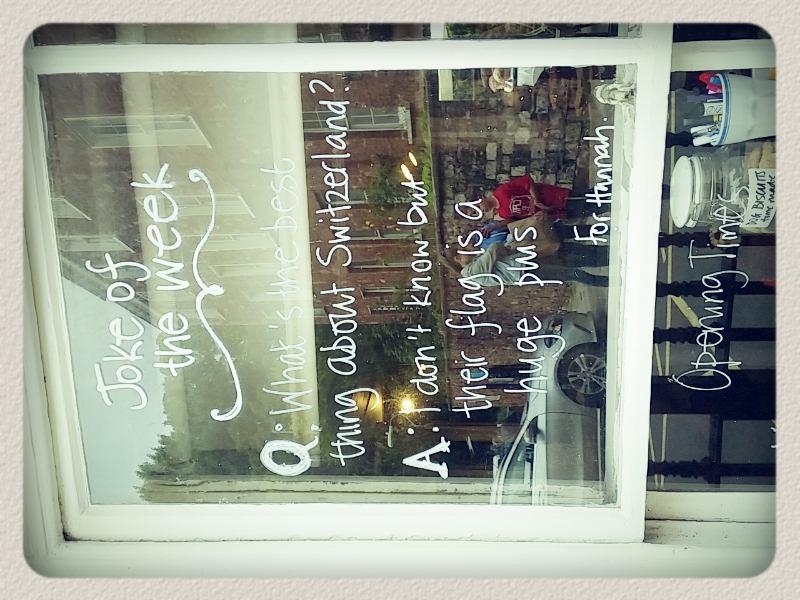 Joke of
the week
Q: What's the best
thing about Switzerland?
A: I don't know but..
their flag is a
huge plus
For Hannah.
Opening Times
BISCUITS